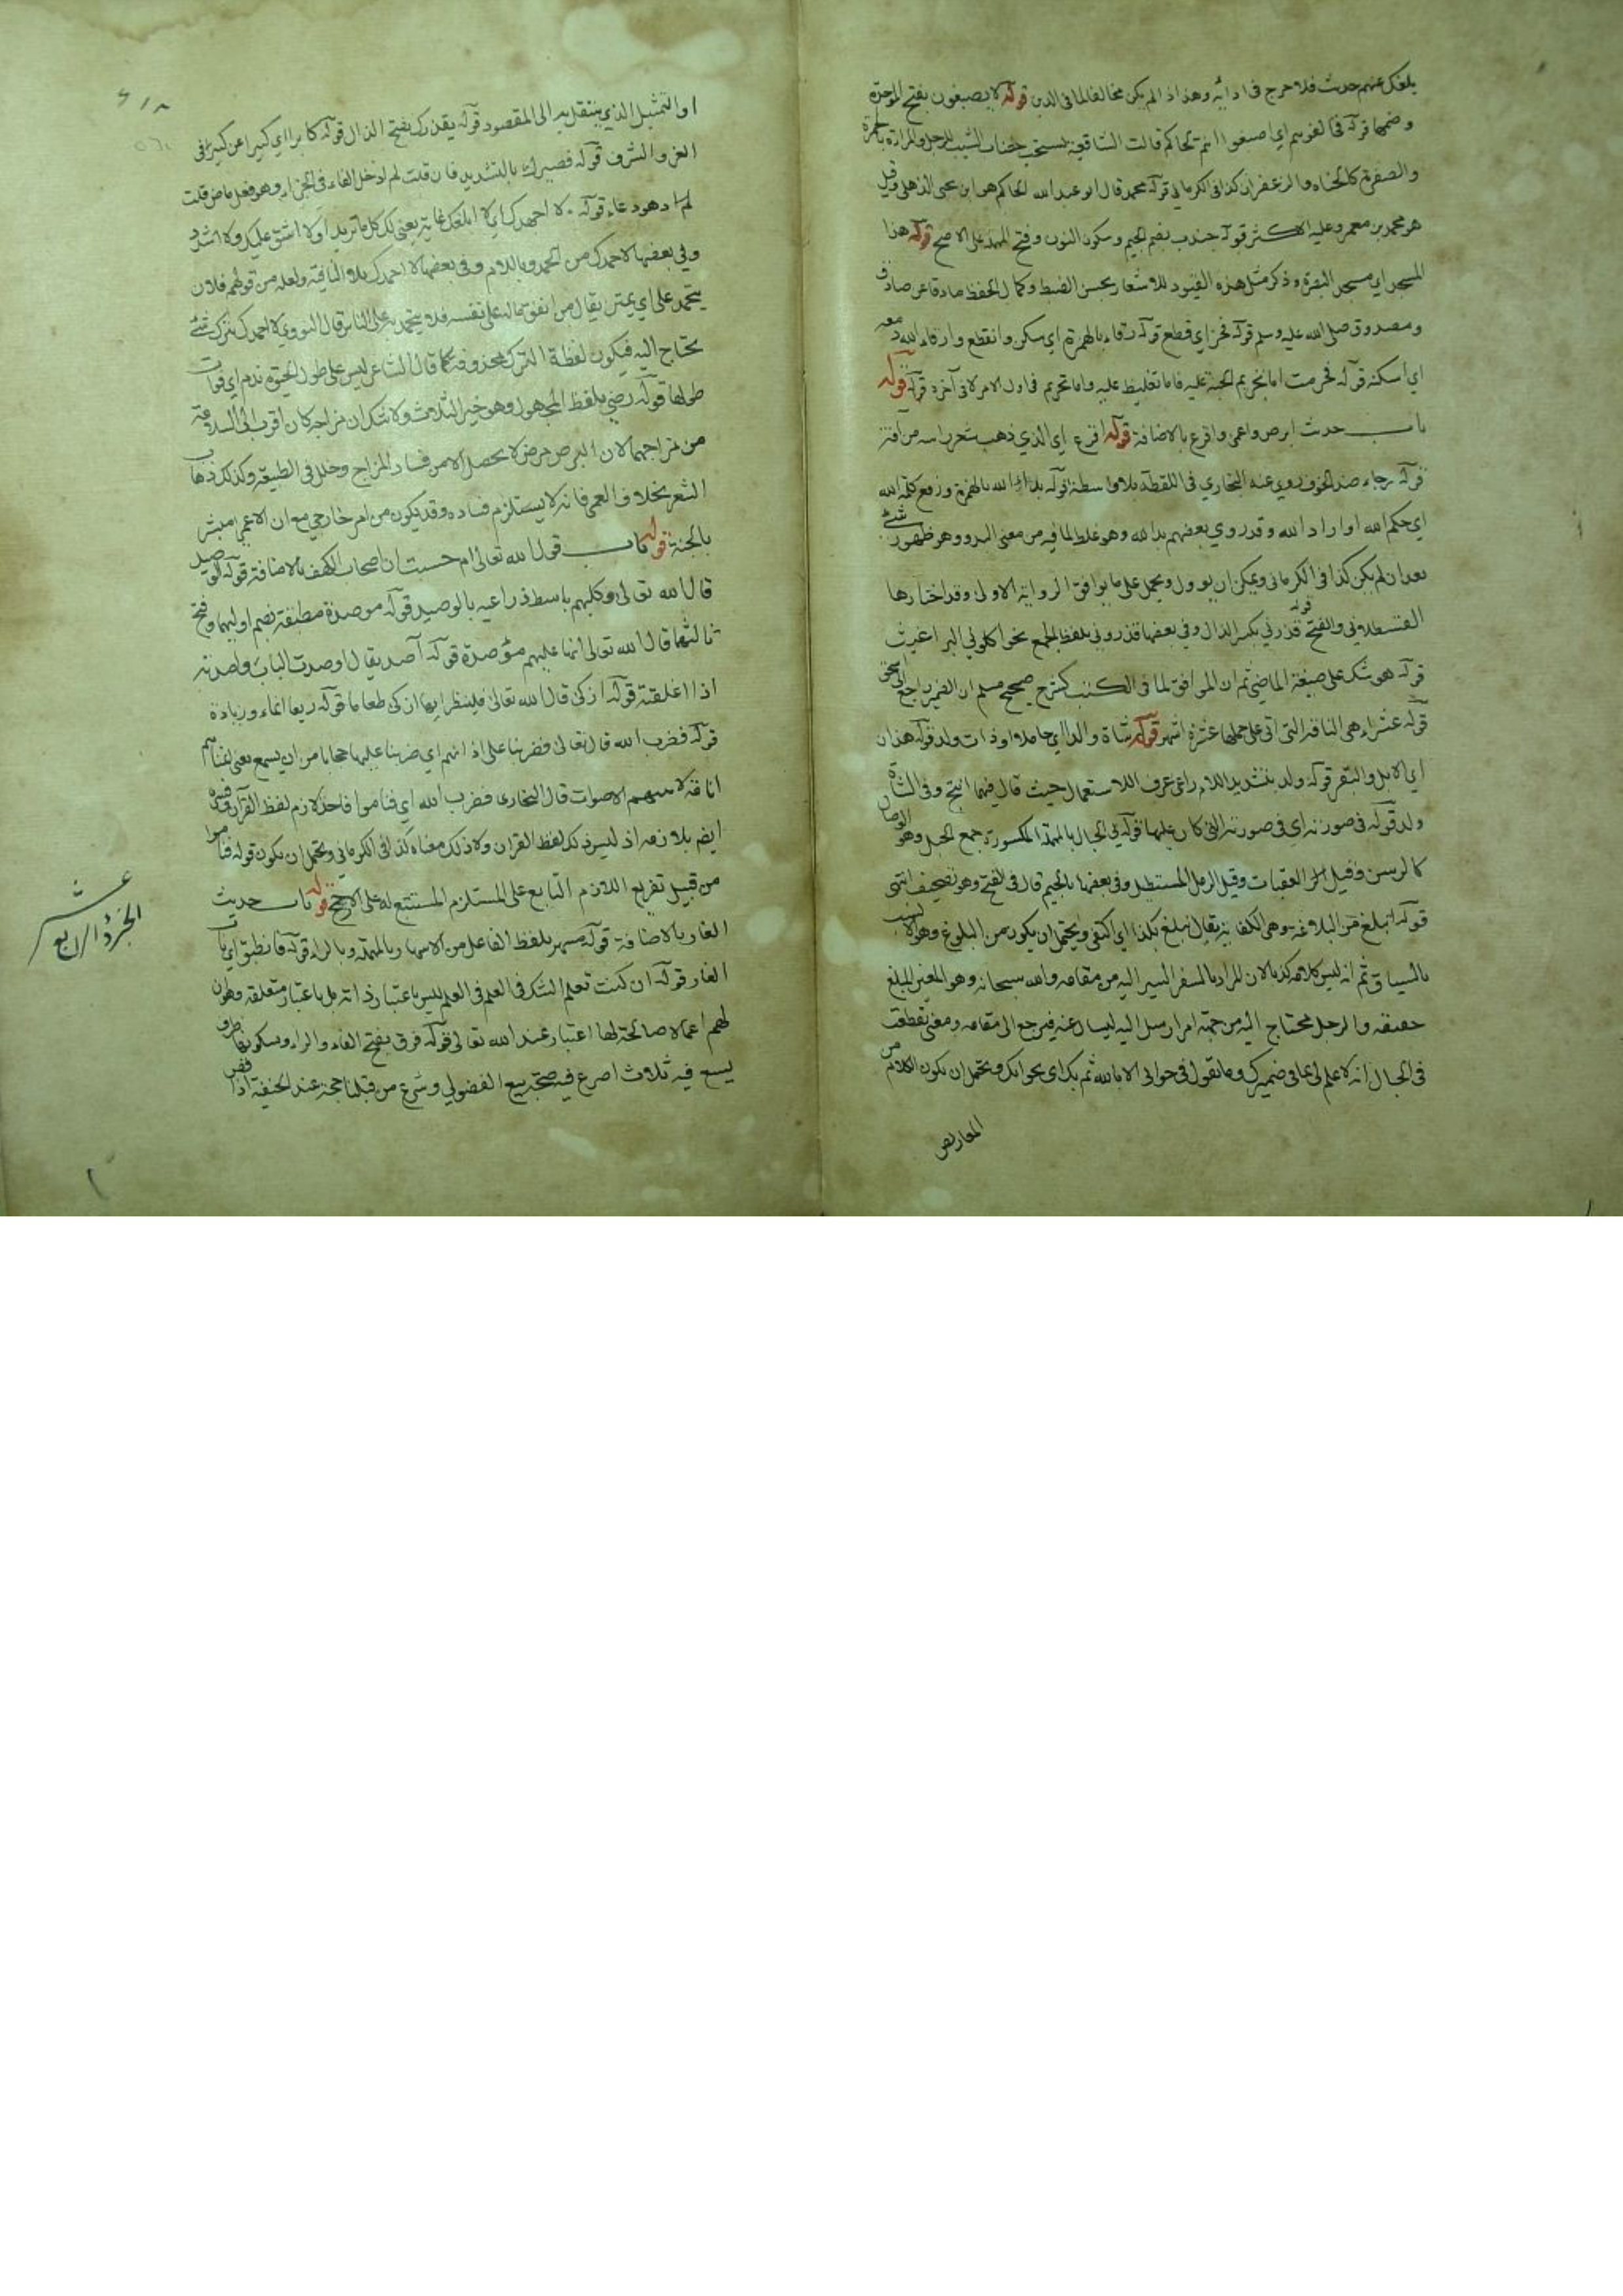 يبلغك عنهم حديث فلا حرج في ادائه وهذا اذا لم يكن مخالفا لما في الدين قوله لا يصبغون بفتح الموحدة
وضمها قوله فخالفوهم اي اصبغوا انتم لحاكم قالت الشافعية يستحب خضاب الشيب للرجل والمراة بالحمرة
والصفرة كالحناء والزعفران كذا في الكرماني قوله محمد قال ابو عبد الله الحاكم هو ابن يحيى الذهلي وقيل
هو محمد بن معمر وعليه الاكثر قوله جندب بضم الجيم وسكون النون وفتح المهملة على الاصح قوله هذا
المسجد اي مسجد البصرة وذكر مثل هذه القيود للاشعار بحسن الضبط وكمال الحفظ صادقا عن صادق
ومصدوق صلى الله عليه وسلم قوله فحز اي قطع قوله رقاء بالهمزة اي سكن وانقطع وارقاء الله دمعه
اي اسكنه قوله فحرمت اما تحريم الجنة عليه فاما تغليظ عليه واما تحريم في اول الامر لا في آخره قوله
باب حديث ابرص واعمى واقرع بالاضافة قوله اقرع اي الذي ذهب شعر راسه من آفة
قوله رجاء ضد الخوف روى عنه البخاري في اللقطة بلا واسطة قوله بداء الله بالهمزة ورفع كلمة الله
اي حكم الله او اراد الله وقد روي بعضهم بدا لله وهو غلط لما فيه من معنى البدو وهو ظهور شئ
بعد ان لم يكن كذا في الكرماني ويمكن ان يوول ويحمل على ما يوافق الرواية الاولى وقد اختارها
القسطلاني والفتح قوله قذرني بكسر الذال وفي بعضها قذروني بلفظ الجمع نحو اكلوني البراغيث
قوله هو شك على صيغة الماضي ثم ان الموافق لما في الكتب كشرح صحيح مسلم ان الضمير راجع الى اسحق
قوله عشراء هي الناقة التي اتى على حملها عشرة اشهر قوله شاة والدا اي حاملا او ذات ولد قوله هذان
اي الابل والبقر قوله ولد بتشديد اللام راعى عرف الاستعمال حيث قال فيهما انتج وفي الشاة
ولد قوله في صورته اي في صورته التي كان عليها قوله الحبال بالمهملة المكسورة جمع الحبل وهو الوصال
كالرسن وقيل العقبات وقيل الرمل المستطيل وفي بعضها بالجيم قال في الفتح وهو تصحيف انتهى
قوله اتبلغ من البلاغة وهي الكفاية يقال تبلغ بكذا اي اكتفى ويحتمل ان يكون من البلوغ وهو الانسب
بالسياق ثم انه ليس كلامه كذبا لان المراد بالسفر السير اليه من مقامه والله سبحانه وهو المعين المبلغ
حقيقة والرجل محتاج اليه من جهته امر ارسل اليه ليسال عنه فيرجع الى مقامه ومعنى تقطعت
في الحبال انه لا علم لي بما في ضميرك وما تقول في جوابي الا بالله ثم بك اي بجوابك ويحتمل ان يكون الكلام من
المعاريض
او التمثيل الذي ينتقل به الى المقصود قوله يقذرك بفتح الذال قوله كابرا اي كبيرا عن كبير في
العز والشرف قوله فصيرك بالتشديد فان قلت لم ادخل الفاء في الجزاء وهو فعل ماض قلت
لانه دعاء قوله لا اجهدك اي لا ابلغك غاية يعني لك كل ما تريد او لا اشق عليك ولا اشدد
وفي بعضها لاحمدك من الحمد وباللام وفي بعضها لا احمدك بلا النافية ولعله من قولهم فلان
يتحمد علي اي يمتن يقال من انفق ماله على نفسه فلا يتحمد به على الناس قال النووي لا احمدك بترك شئ
تحتاج اليه فيكون لفظة الترك محذوفة كما قال الشاعر ليس على طول الحيوة ندم اي فوات
طولها قوله رضي بلفظ المجهول وهو خير الثلاث ولا شك ان مزاجه كان اقرب الى السلامة
من مزاجهما لان البرص مرض لا يحصل الا من فساد المزاج وخلل في الطبيعة وكذلك ذهاب
الشعر بخلاف العمى فانه لا يستلزم فساده وقد يكون من امر خارجي مع ان الاعمى مبشر
بالجنة قوله باب قول الله تعالى ام حسبت ان اصحاب الكهف بالاضافة قوله الوصيد
قال الله تعالى وكلبهم باسط ذراعيه بالوصيد قوله موصدة مطبقة بضم اوليهما وفتح
ثالثها قال الله تعالى انها عليهم مؤصدة قوله آصد يقال اوصدت الباب واصدته
اذا اغلقته قوله ازكى قال الله تعالى فلينظر ايها ازكى طعاما قوله ريعا انماء وزيادة
قوله فضرب الله قال تعالى فضربنا على اذانهم اي ضربنا عليها حجابا من ان يسمع يعني انمناهم
انامة لا تنبههم الاصوات قال البخاري فضرب الله اي فناموا فاخذ لازم لفظ القرآن وفسره
ايضا بلازمه اذ ليس ذلك لفظ القران ولا ذلك معناه كذا في الكرماني ويحتمل ان يكون قوله فناموا
من قبيل تفريع اللازم التابع على المستلزم المستتبع له على الارجح قوله باب حديث
الغار بالاضافة قوله مسهر بلفظ الفاعل من الاسهار بالمهملة وبالراء قوله فانطبق اي باب
الغار قوله ان كنت تعلم الشك في العلم في العلم ليس باعتبار ذاته بل باعتبار متعلقه وهو ان
لهم اعمالا صالحة لها اعتبار عند الله تعالى قوله فرق بفتح الفاء والراء وسكونها ظرف
يسع فيه ثلاث اصوع فيه صحة بيع الفضولي وشرع من قبلنا حجة عند الحنفية اذا قص
الجزؤ الرابع عشر